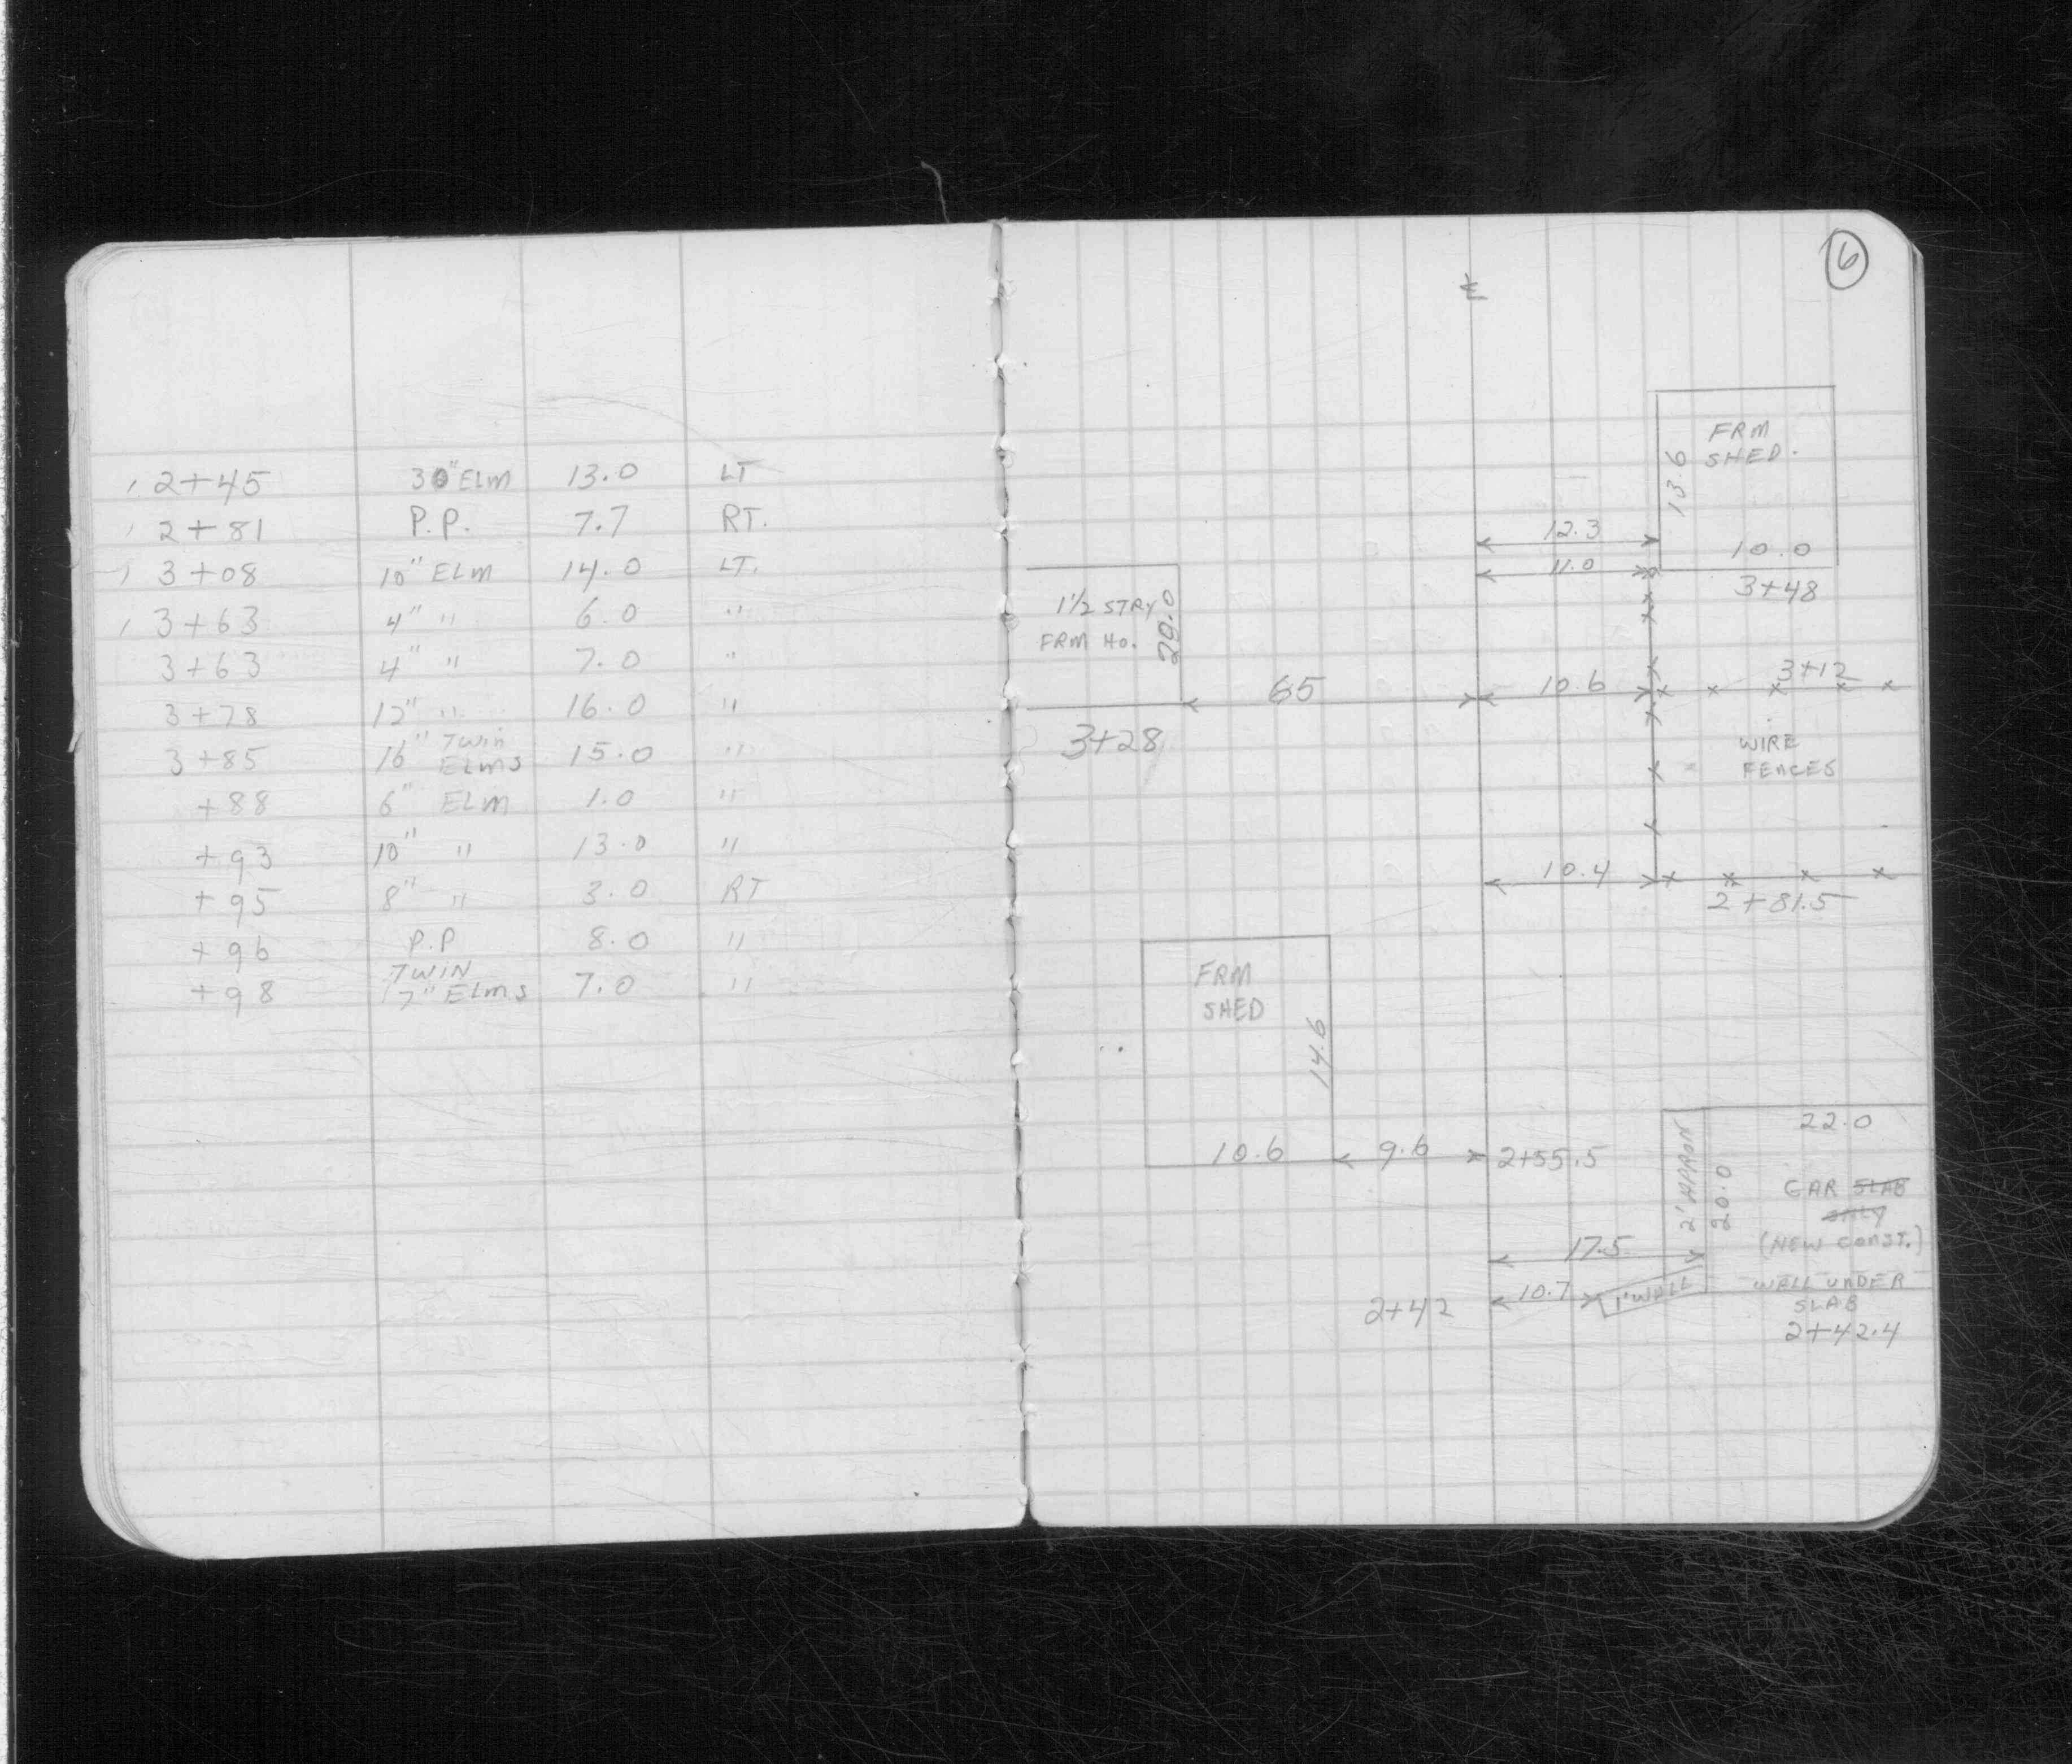 2+45 30" ELM 13.0 LT
2+81 P.P. 7.7 RT.
3+08 10" ELM 14.0 LT.
3+63 4" " 6.0 "
3+63 4" " 7.0 "
3+78 12" " 16.0 "
3+85 16" TWIN ELMS 15.0 "
+88 6" ELM 1.0 "
+93 10" " 13.0 "
+95 8" " 3.0 RT
+96 P.P 8.0 "
+98 TWIN 7" ELMS 7.0 "
6
℄
FRM
SHED.
13.6
12.3
10.0
11.0
3+48
1½ STRY
FRM HO.
65
10.6
3+12
3+28
WIRE
FENCES
10.4
2+81.5
FRM
SHED
14.6
10.6
9.6
2+55.5
22.0
2' APRON
20.0
GAR SLAB
ONLY
(NEW CONST.)
17.5
10.7
1' WALL
2+42
WALL UNDER
SLAB
2+42.4